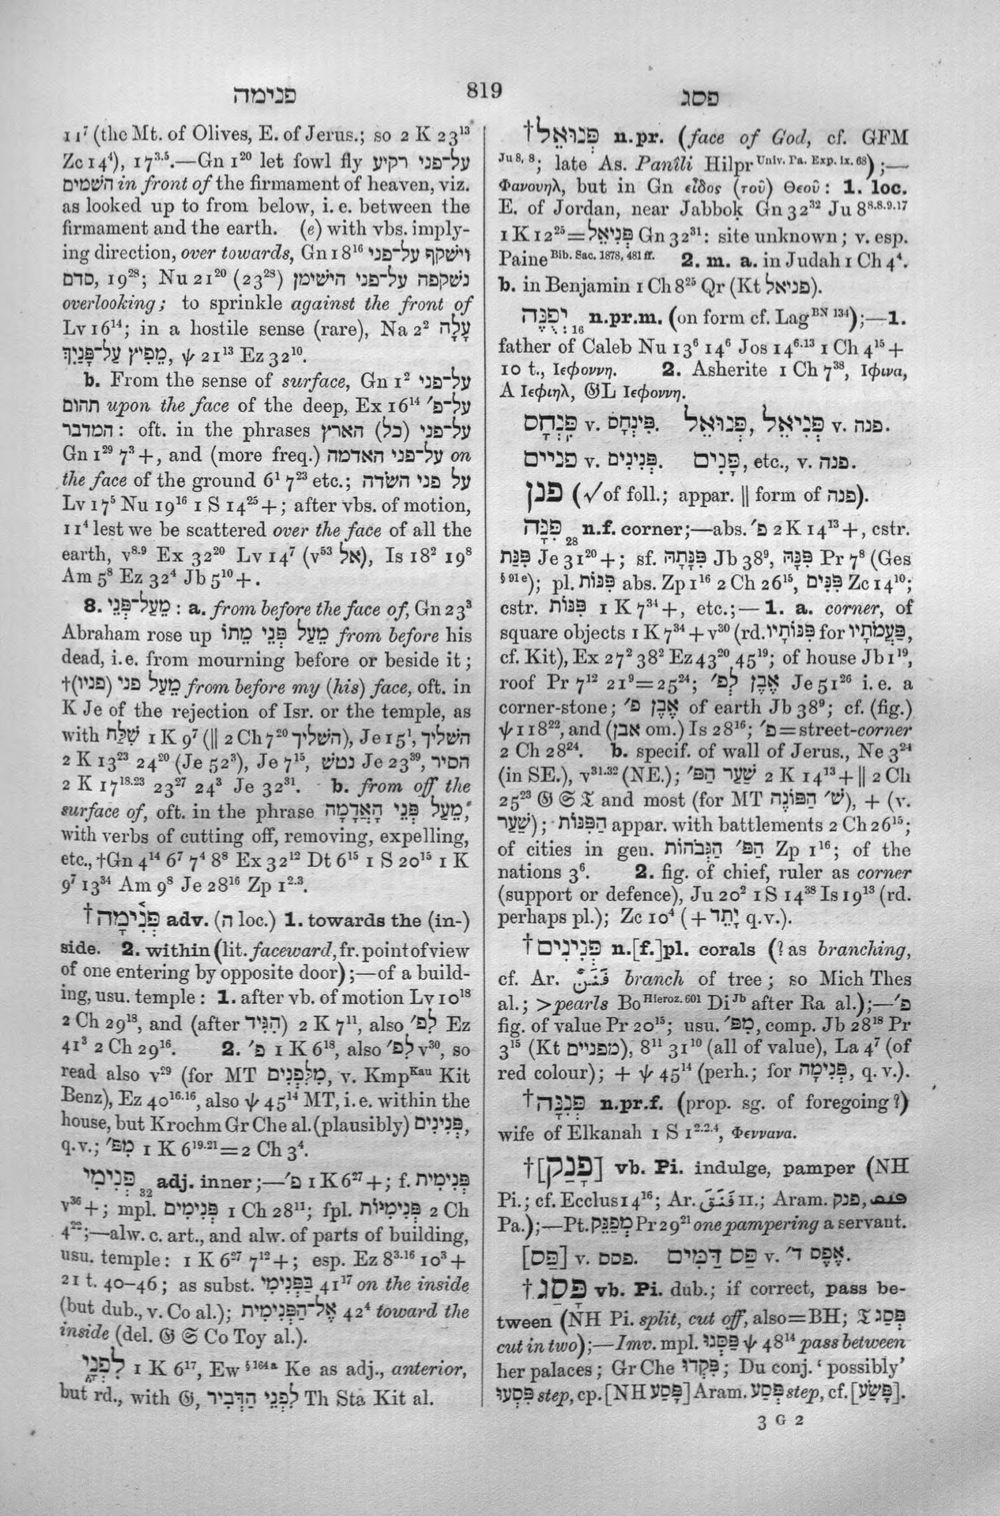 פנימה
819
פסג
11⁷ (the Mt. of Olives, E. of Jerus.; so 2 K 23¹³
Zc 14⁴), 17³·⁵.—Gn 1²⁰ let fowl fly על־פני רקיע
השמים in front of the firmament of heaven, viz.
as looked up to from below, i. e. between the
firmament and the earth. (e) with vbs. imply-
ing direction, over towards, Gn 18¹⁶ וישקף על־פני
סדם, 19²⁸; Nu 21²⁰ (23²⁸) נשקפה על־פני הישימן
overlooking; to sprinkle against the front of
Lv 16¹⁴; in a hostile sense (rare), Na 2² עָלָה
מֵפִיץ עַל־פָּנַיִךְ, ψ 21¹³ Ez 32¹⁰.
b. From the sense of surface, Gn 1² על־פני
תהום upon the face of the deep, Ex 16¹⁴ על־פ׳
המדבר: oft. in the phrases על־פני (כל) הארץ
Gn 1²⁹ 7³+, and (more freq.) על־פני האדמה on
the face of the ground 6¹ 7²³ etc.; על פני השדה
Lv 17⁵ Nu 19¹⁶ 1 S 14²⁵+; after vbs. of motion,
11⁴ lest we be scattered over the face of all the
earth, v⁸·⁹ Ex 32²⁰ Lv 14⁷ (v⁵³ אֶל), Is 18² 19⁸
Am 5⁸ Ez 32⁴ Jb 5¹⁰+.
8. מֵעַל־פְּנֵי: a. from before the face of, Gn 23³
Abraham rose up מֵעַל פְּנֵי מֵתוֹ from before his
dead, i.e. from mourning before or beside it;
†מֵעַל פני (פניו) from before my (his) face, oft. in
K Je of the rejection of Isr. or the temple, as
with שִׁלַּח 1 K 9⁷ (‖ 2 Ch 7²⁰ השליך), Je 15¹, השליך
2 K 13²³ 24²⁰ (Je 52³), Je 7¹⁵, נטש Je 23³⁹, הסיר
2 K 17¹⁸·²³ 23²⁷ 24³ Je 32³¹. b. from off the
surface of, oft. in the phrase מֵעַל פְּנֵי הָאֲדָמָה,
with verbs of cutting off, removing, expelling,
etc., †Gn 4¹⁴ 6⁷ 7⁴ 8⁸ Ex 32¹² Dt 6¹⁵ 1 S 20¹⁵ 1 K
9⁷ 13³⁴ Am 9⁸ Je 28¹⁶ Zp 1²·³.
†פְּנִימָה adv. (ה loc.) 1. towards the (in-)
side. 2. within (lit. faceward, fr. point of view
of one entering by opposite door);—of a build-
ing, usu. temple: 1. after vb. of motion Lv 10¹⁸
2 Ch 29¹⁸, and (after הִגִּיד) 2 K 7¹¹, also לִפ׳ Ez
41³ 2 Ch 29¹⁶. 2. פ׳ 1 K 6¹⁸, also לִפ׳ v³⁰, so
read also v²⁹ (for MT מִלִּפְנִים, v. Kmp Kau Kit
Benz), Ez 40¹⁶·¹⁶, also ψ 45¹⁴ MT, i. e. within the
house, but Krochm Gr Che al. (plausibly) פְּנִינִים,
q.v.; מִפּ׳ 1 K 6¹⁹·²¹=2 Ch 3⁴.
פְּנִימִי 32 adj. inner;—פ׳ 1 K 6²⁷+; f. פְּנִימִית
v³⁶+; mpl. פְּנִימִים 1 Ch 28¹¹; fpl. פְּנִימִיּוֹת 2 Ch
4²²;—alw. c. art., and alw. of parts of building,
usu. temple: 1 K 6²⁷ 7¹²+; esp. Ez 8³·¹⁶ 10³+
21 t. 40–46; as subst. בַּפְּנִימִי 41¹⁷ on the inside
(but dub., v. Co al.); אֶל־הַפְּנִימִית 42⁴ toward the
inside (del. 𝔊 𝔖 Co Toy al.).
לִפְנַי 1 K 6¹⁷, Ew § 164 a Ke as adj., anterior,
but rd., with 𝔊, לִפְנֵי הַדְּבִיר Th Sta Kit al.
†פְּנוּאֵל n.pr. (face of God, cf. GFM
Ju 8, 8; late As. Panîli Hilpr Univ. Pa. Exp. ix. 68);—
Φανουηλ, but in Gn εἶδος (τοῦ) Θεοῦ: 1. loc.
E. of Jordan, near Jabboḳ Gn 32³² Ju 8⁸·⁸·⁹·¹⁷
1 K 12²⁵=פְּנִיאֵל Gn 32³¹: site unknown; v. esp.
Paine Bib. Sac. 1878, 481 ff. 2. m. a. in Judah 1 Ch 4⁴.
b. in Benjamin 1 Ch 8²⁵ Qr (Kt פניאל).
יְפֻנֶּה 16 n.pr.m. (on form cf. Lag BN 134);—1.
father of Caleb Nu 13⁶ 14⁶ Jos 14⁶·¹³ 1 Ch 4¹⁵+
10 t., Ιεφοννη. 2. Asherite 1 Ch 7³⁸, Ιφινα,
A Ιεφιηλ, 𝔊L Ιεφοννη.
פְּנִיאֵל, פְּנוּאֵל v. פנה. פִּנְחָס v. פִּינְחָס.
פָּנִים, etc., v. פנה. פניים v. פְּנִינִים.
פנן (√ of foll.; appar. ‖ form of פנה).
פִּנָּה 28 n.f. corner;—abs. פ׳ 2 K 14¹³+, cstr.
פִּנַּת Je 31²⁰+; sf. פִּנָּתָהּ Jb 38⁹, פִּנָּהּ Pr 7⁸ (Ges
§ 91 e); pl. פִּנּוֹת abs. Zp 1¹⁶ 2 Ch 26¹⁵, פִּנִּים Zc 14¹⁰;
cstr. פִּנּוֹת 1 K 7³⁴+, etc.;—1. a. corner, of
square objects 1 K 7³⁴+v³⁰ (rd. פִּנּוֹתָיו for פַּעֲמֹתָיו,
cf. Kit), Ex 27² 38² Ez 43²⁰ 45¹⁹; of house Jb 1¹⁹,
roof Pr 7¹² 21⁹=25²⁴; אֶבֶן לְפ׳ Je 51²⁶ i. e. a
corner-stone; אֶבֶן פ׳ of earth Jb 38⁹; cf. (fig.)
ψ 118²², and (אבן om.) Is 28¹⁶; פ׳=street-corner
2 Ch 28²⁴. b. specif. of wall of Jerus., Ne 3²⁴
(in SE.), v³¹·³² (NE.); שַׁעַר הַפּ׳ 2 K 14¹³+‖ 2 Ch
25²³ 𝔊 𝔖 𝔗 and most (for MT שׁ׳ הַפּוֹנֶה), + (v.
שַׁעַר); הַפִּנּוֹת appar. with battlements 2 Ch 26¹⁵;
of cities in gen. הַפּ׳ הַגְּבֹהוֹת Zp 1¹⁶; of the
nations 3⁶. 2. fig. of chief, ruler as corner
(support or defence), Ju 20² 1 S 14³⁸ Is 19¹³ (rd.
perhaps pl.); Zc 10⁴ (+יָתֵד q.v.).
†פְּנִינִים n.[f.]pl. corals (? as branching,
cf. Ar. فَنَنٌ branch of tree; so Mich Thes
al.; >pearls Bo Hieroz. 601 Di Jb after Ra al.);—פ׳
fig. of value Pr 20¹⁵; usu. מִפּ׳, comp. Jb 28¹⁸ Pr
3¹⁵ (Kt מפניים), 8¹¹ 31¹⁰ (all of value), La 4⁷ (of
red colour); + ψ 45¹⁴ (perh.; for פְּנִימָה, q. v.).
†פְּנִנָּה n.pr.f. (prop. sg. of foregoing?)
wife of Elkanah 1 S 1²·²·⁴, Φεννανα.
†[פָּנַק] vb. Pi. indulge, pamper (NH
Pi.; cf. Ecclus 14¹⁶; Ar. فَنَّقَ II.; Aram. פנק, ܦܢܩ
Pa.);—Pt. מְפַנֵּק Pr 29²¹ one pampering a servant.
[פַּס] v. פסס. פַּס דַּמִּים v. אֶפֶס ד׳.
†פָּסַג vb. Pi. dub.; if correct, pass be-
tween (NH Pi. split, cut off, also=BH; 𝔗 פְּסַג
cut in two);—Imv. mpl. פַּסְּגוּ ψ 48¹⁴ pass between
her palaces; Gr Che פִּקְדוּ; Du conj. ‘possibly’
פִּסְעוּ step, cp. [NH פָּסַע] Aram. פְּסַע step, cf. [פָּשַׂע].
3 G 2